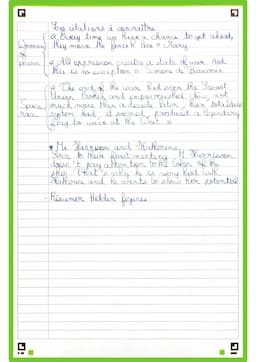 Les citations à connaître
Women of power
« Every time we have a chance to get ahead,
they move the finish line » Mary.
« All oppression creates a state of war. And
this is no exception » Simone de Beauvoir
Space race
« The end of the war had seen the Soviet
Union broken and impoverished; now, not
much more than a decade later, their totalitarian
system had, it seemed, produced a legendary
way to wave at the West. »
• Mr Harrison and Katherine,
Since to their first meeting, M Harrisson
doesn't pay attention to the color of the
skin. That's why he is very kind with
Katherine and he wants to show her potential
- Résumer Hidden figures